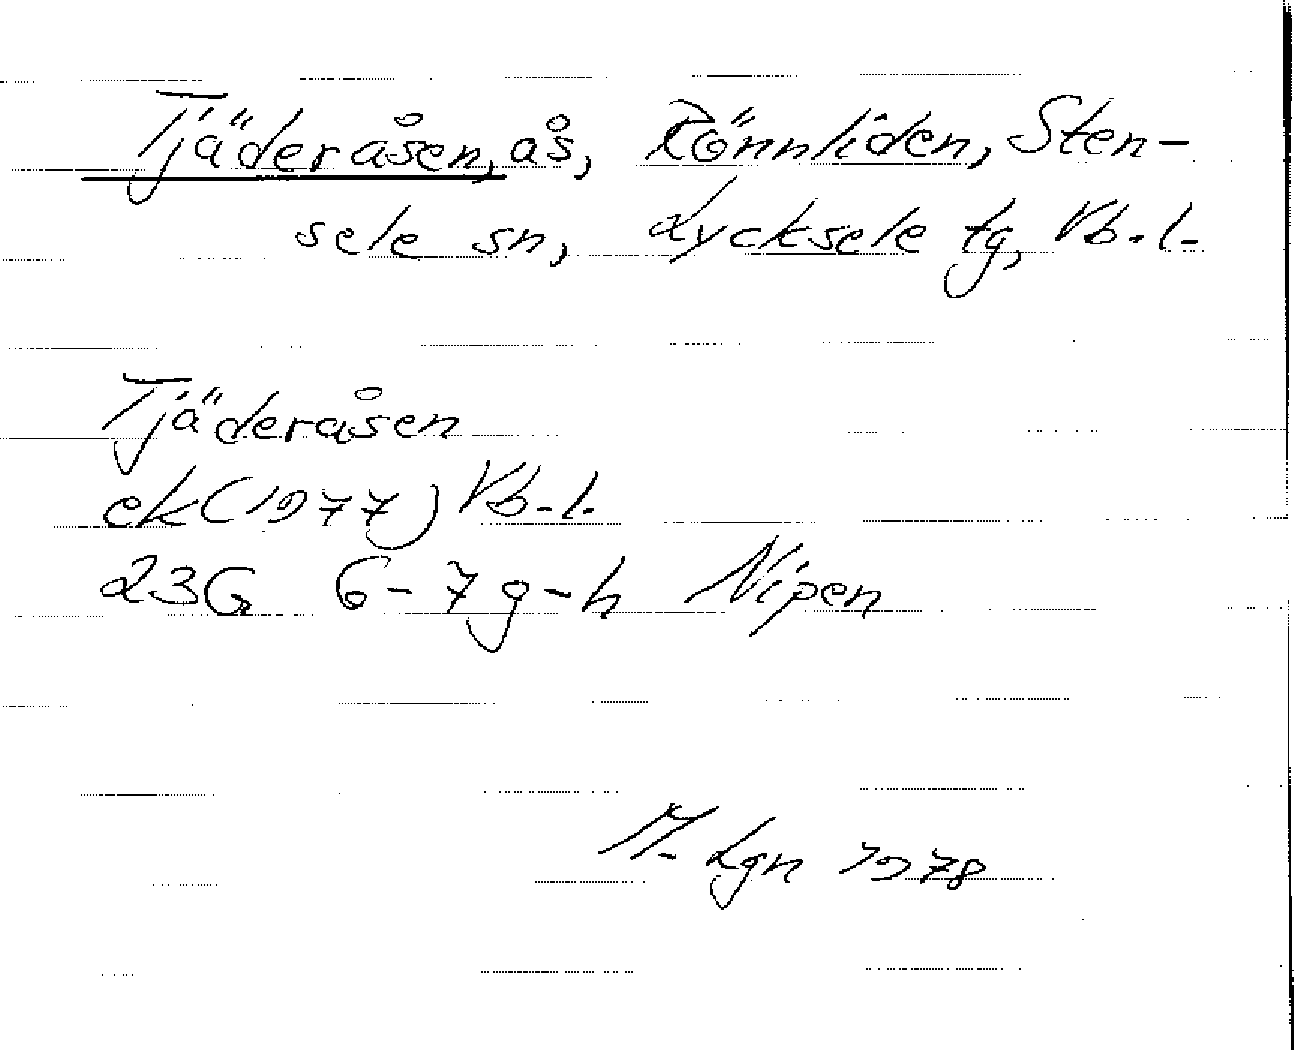 Tjäderåsen, ås, Rönnliden, Sten-
sele sn, Lycksele tg, Vb.l.
Tjäderåsen
ek (1977) Vb.l.
23G 6-7 g-h Nipen
M. Lgn 1978